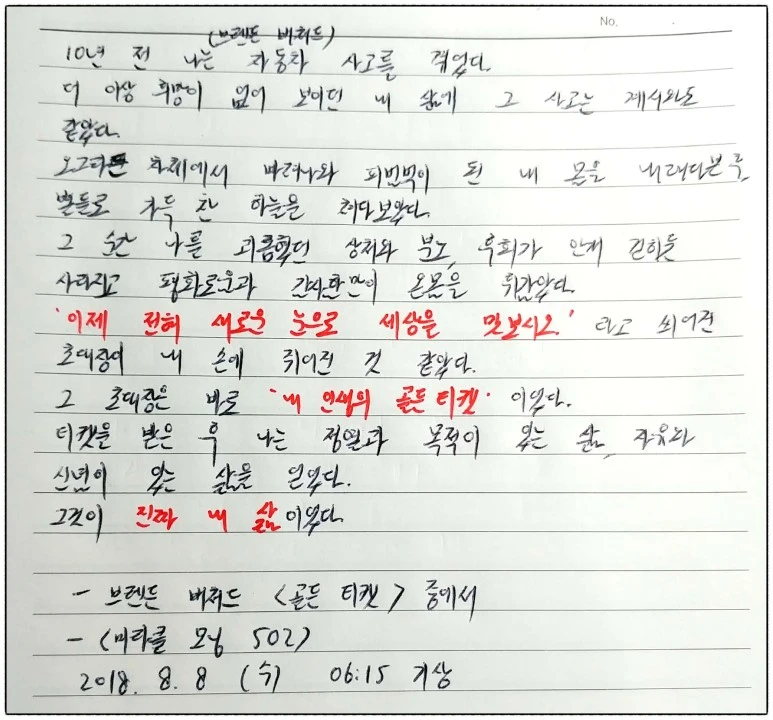 No.
(브렌든 버처드)
10년 전 나는 자동차 사고를 겪었다.
더 이상 희망이 없어 보이던 내 삶에 그 사고는 계시와도
같았다.
차체에서 빠져나와 피범벅이 된 내 몸을 내려다본 후,
별들로 가득 찬 하늘을 쳐다보았다.
그 순간 나를 괴롭혔던 상처와 분노, 후회가 안개 걷히듯
사라지고 평화로운과 감사함만이 온몸을 휘감았다.
'이제 전혀 새로운 눈으로 세상을 맛보시오.' 라고 쓰여진
초대장이 내 손에 쥐어진 것 같았다.
그 초대장은 바로 '내 인생의 골든 티켓' 이었다.
티켓을 받은 후 나는 정열과 목적이 있는 삶, 자유와
신념이 있는 삶을 얻었다.
그것이 진짜 내 삶이었다.
- 브렌든 버처드 <골든 티켓> 중에서
- <미라클 모닝 502>
2018. 8. 8 (수) 06:15 기상